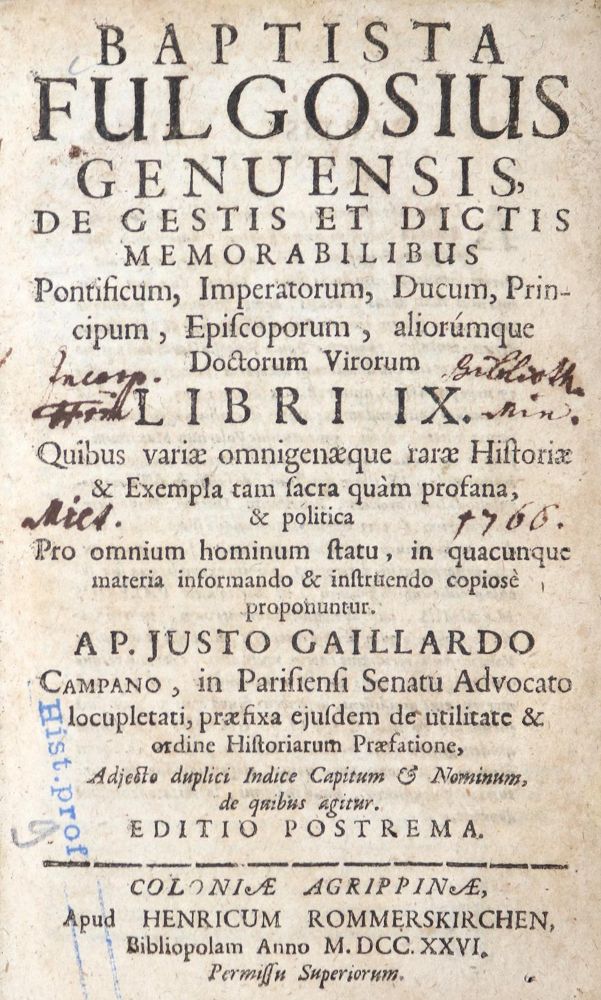 BAPTISTA
FULGOSIUS
GENUENSIS,
DE GESTIS ET DICTIS
MEMORABILIBUS
Pontificum, Imperatorum, Ducum, Prin-
cipum, Epiſcoporum, aliorúmque
Doctorum Virorum
Incorp. Biblioth.
LIBRI IX. Min.
Quibus variæ omnigenæque raræ Hiſtoriæ
& Exempla tam ſacra quàm profana,
Mict. & politica 1766.
Pro omnium hominum ſtatu, in quacunque
materia informando & inſtruendo copiosè
proponuntur.
A P. JUSTO GAILLARDO
CAMPANO, in Pariſienſi Senatu Advocato
locupletati, præfixa ejuſdem de utilitate &
ordine Hiſtoriarum Præfatione,
Adjecto duplici Indice Capitum & Nominum,
de quibus agitur.
EDITIO POSTREMA.
Hist. prof
COLONIÆ AGRIPPINÆ,
Apud HENRICUM ROMMERSKIRCHEN,
Bibliopolam Anno M. DCC. XXVI.
Permiſſu Superiorum.